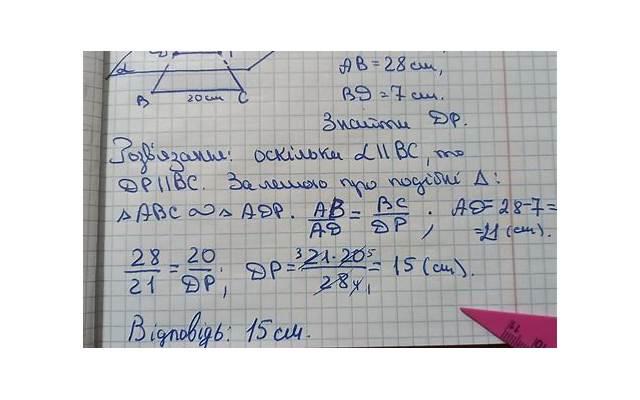 α
B 20 см C
AB = 28 см,
BD = 7 см.
Знайти DP.
Розв'язання: оскільки α || BC, то
DP || BC. За лемою про подібні Δ:
Δ ABC ∾ Δ ADP. AB/AD = BC/DP ; AD = 28 - 7 =
= 21 (см).
28/21 = 20/DP ; DP = 21·20/28 = 15 (см).
Відповідь: 15 см.